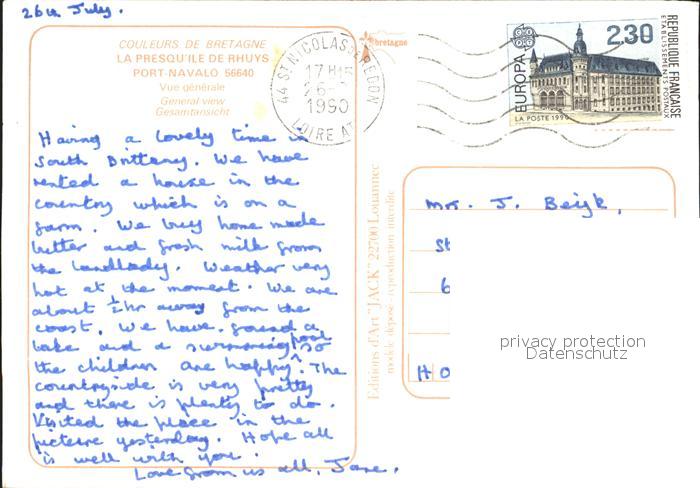 26th July.
COULEURS DE BRETAGNE
LA PRESQU'ILE DE RHUYS
PORT-NAVALO 56640
Vue générale
General view
Gesamtansicht
bretagne
44 ST NICOLAS DE REDON
17 H 15
26-7
1990
LOIRE AT
EUROPA
2,30
LA POSTE 1990
REPUBLIQUE FRANÇAISE
ETABLISSEMENTS POSTAUX
Having a lovely time in
South Brittany. We have
rented a house in the
country which is on a
farm. We buy home made
butter and fresh milk from
the landlady. Weather very
hot at the moment. We are
about ½hr away from the
coast. We have found a
lake and a swimming pool so
the children are happy. The
countryside is very pretty
and there is plenty to do.
Visited the place in the
picture yesterday. Hope all
is well with you.
Love from us all, Jane.
Editions d'Art "JACK" 22700 Louannec
modèle déposé - reproduction interdite
Mrs. J. Beijk,
St
6
HO
privacy protection
Datenschutz